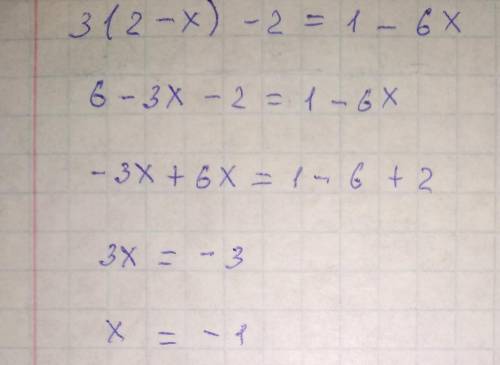 3(2-x)-2=1-6x
6-3x-2=1-6x
-3x+6x=1-6+2
3x=-3
x=-1